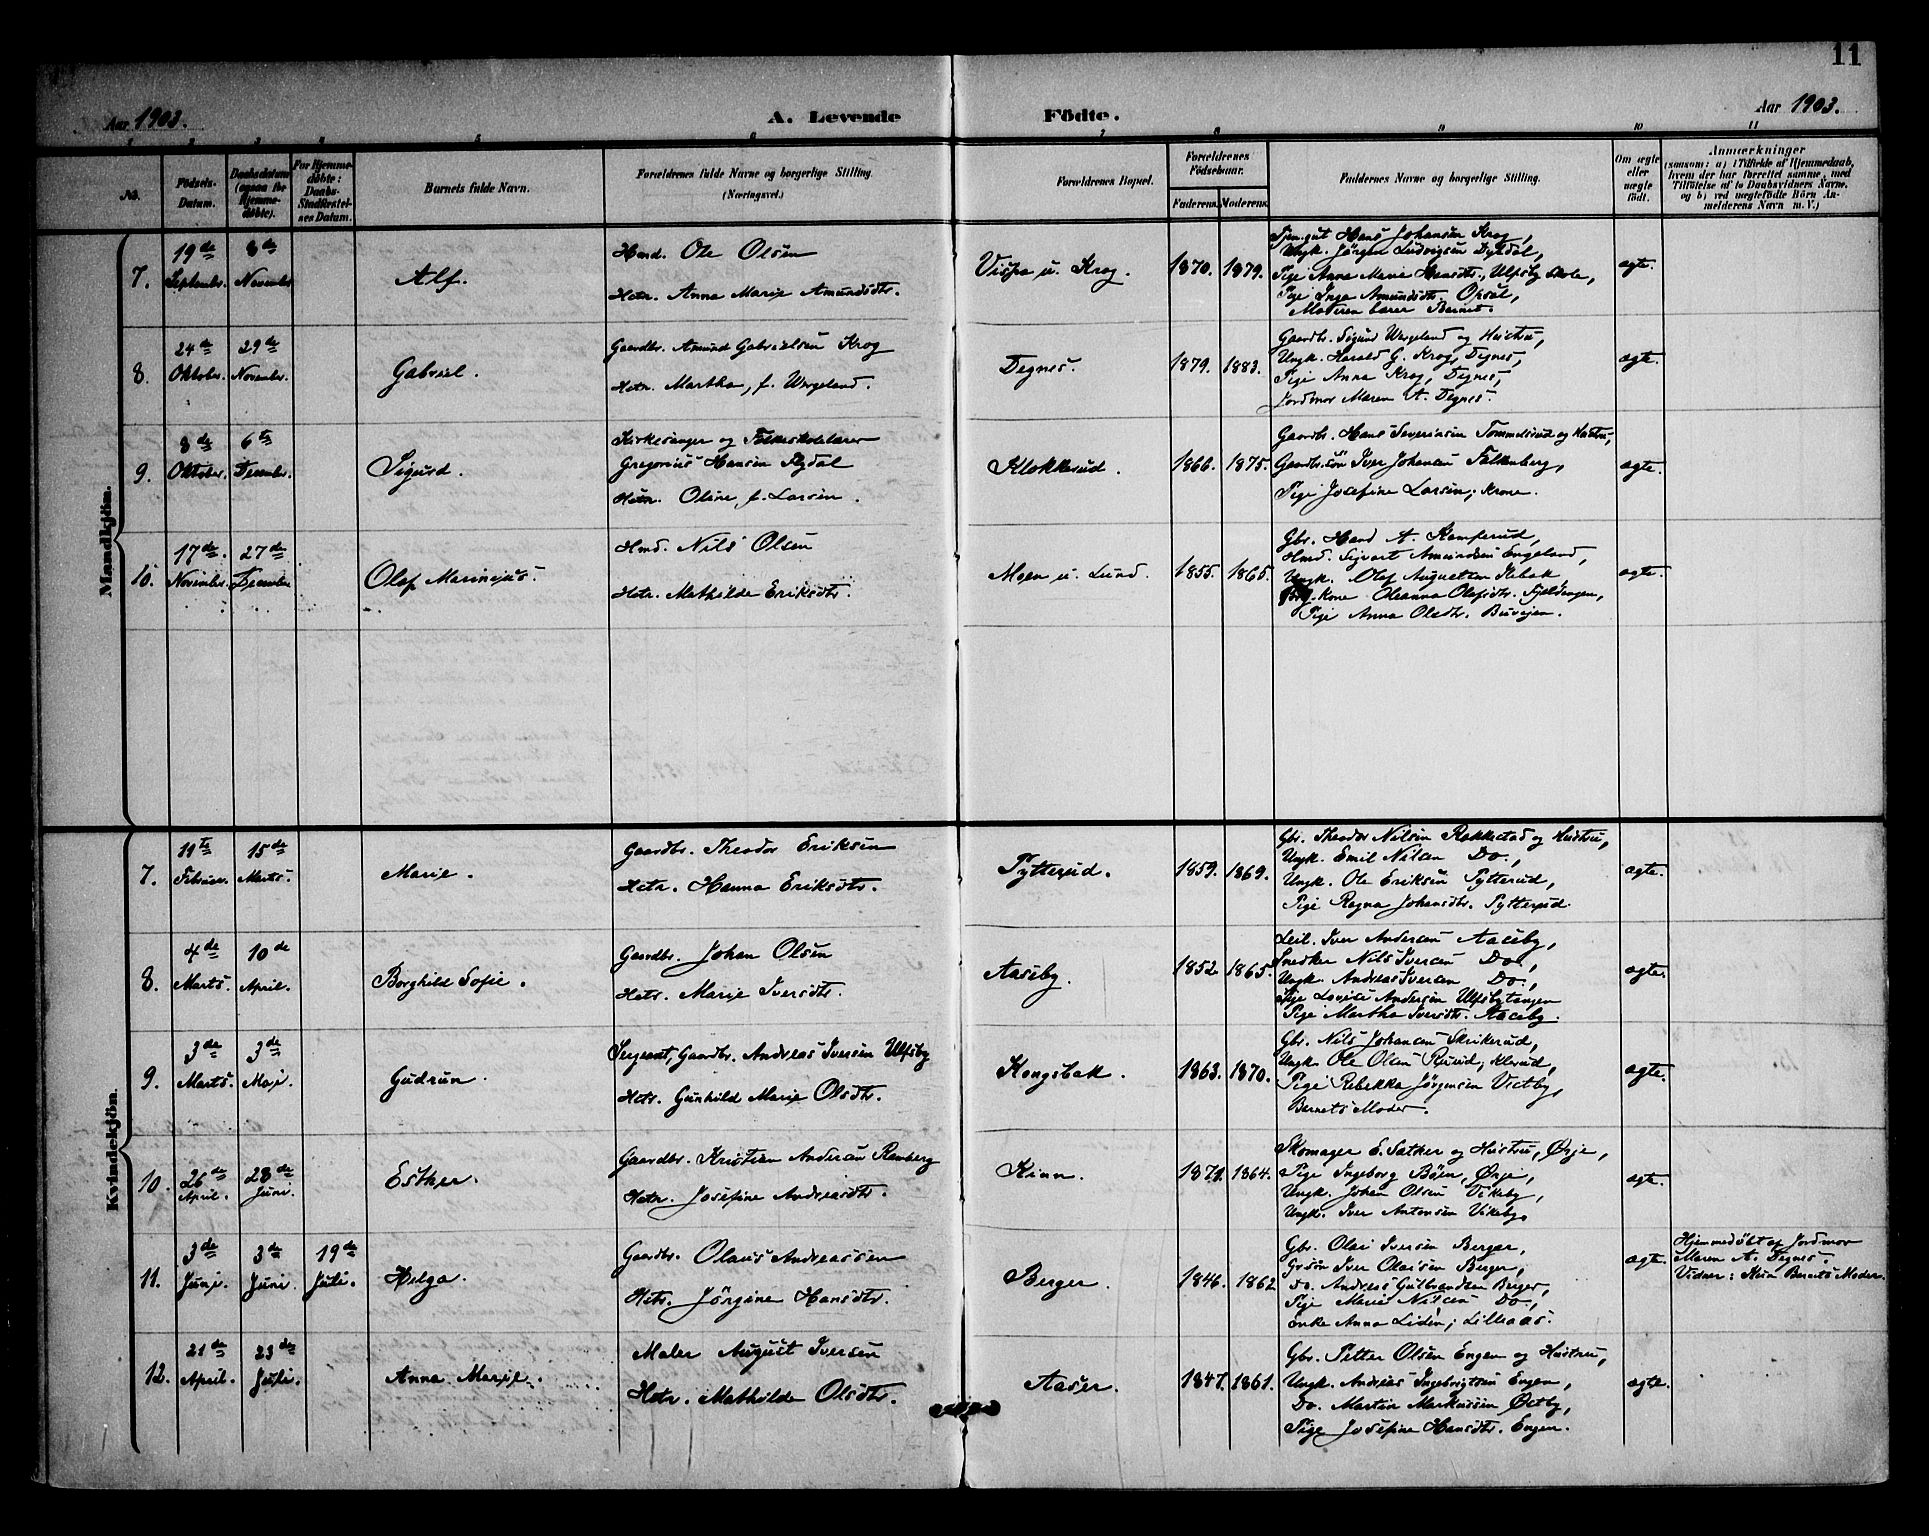 11
Aar 1903.
A. Levende
Födte.
Aar 1903.
1 2 3 4 5 6 7 8 9 10 11
No.
Födsels-
Datum.
Daabsdatum
(ogsaa for
Hjemme-
döbte).
For Hjemme-
döbte:
Daabs-
Stadfæstel-
ses Datum.
Barnets fulde Navn.
Forældrenes fulde Navne og borgerlige Stilling.
(Næringsvei.)
Forældrenes Bopæl.
Forældrenes
Födselsaar.
Faderens.
Moderens.
Faddernes Navne og borgerlige Stilling.
Om ægte
eller
uægte
födt.
Anmærkninger
(saasom: a) i Tilfælde af Hjemmedaab,
hvem der har forrettet samme, med
Tilföielse af to Daabsvidners Navne,
og b) ved uægtefödte Börn An-
melderens Navn m. V.)
Mandkjön.
7.
19de
Septembr.
8de
Novembr.
Alf.
Hmd. Ole Olsen
Hstr. Anna Marie Amundsdtr.
Krog.
1870.
1879.
Tjen.gut Hans Johansen Krog,
Ungk. Jörgen Ludvigsen
Pige Anna Marie Hansdtr., Ulfsby
Pige Inga Amundsdtr. Opsal,
Moderen bærer Barnet.
ægte.
8.
24de
Oktober.
29de
November.
Gabriel.
Gaardbr. Amund Gabrielsen Krog
Hstr. Martha, f. Wergeland.
Degnes.
1879.
1883.
Gaardbr. Sigurd Wergeland og Hustru,
Ungk. Harald G. Krog, Degnes,
Pige Anna Krog, Degnes,
Jordmor Maren A. Degnes.
ægte.
9.
8de
Oktober.
6te
December.
Sigurd.
Kirkesanger og Folkeskolelærer
Gregorius Hansen
Hstr. Oline f. Larsen.
Klokkerud.
1866.
1875.
Gaardbr. Hans Severinsen Tommelsrud og Hustru,
Gaardbr.sön Iver Johansen Falkenberg,
Pige Josefine Larsen, Krone.
ægte.
10.
17de
November.
27de
December
Olaf Marinejus.
Hmd. Nils Olsen
Hstr. Mathilde Eriksdtr.
Moen u. Lund.
1855.
1865.
Gbr. Hans A. Kamperud,
Hmd. Sigvart Amundsen Engeland,
Ungk. Olaf Augustsen
Kone Oleanna Olafsdtr.
Pige Anna Olsdtr.
ægte.
Kvindekjön.
7.
19te
Februar.
15de
Marts.
Marie.
Gaardbr. Theodor Eriksen
Hstr. Hanna Eriksdtr.
Pytterud.
1859.
1869.
Gbr. Theodor Nilsen Rakkestad og Hustru,
Ungk. Emil Nilsen Do.,
Ungk. Ole Eriksen Pytterud,
Pige Ragna Johansdtr. Pytterud.
ægte.
8.
4de
Marts.
10de
April.
Borghild Sofie.
Gaardbr. Johan Olsen
Hstr. Marie Iversdtr.
Aaseby.
1852.
1865.
Leil. Iver Andersen Aaseby,
Snedker Nils Iversen Do.,
Ungk. Andreas Iversen Do.,
Pige Lovise Andersen Ulfsbytangen
Pige Martha Iversdtr. Aaseby.
ægte.
9.
3de
Marts.
3de
Mai.
Gudrun.
Sergeant, Gaardbr. Andreas Iversen Ulfsby
Hstr. Gunhild Marie Olsdtr.
Kongsbak.
1863.
1870.
Gbr. Nils Johansen Skrikerud,
Ungk. Ole Olsen Klerud,
Pige Rebekka Jörgensen Vestby,
Barnets Moder.
ægte.
10.
26de
April.
28de
Juni.
Esther.
Gaardbr. Kristian Andersen Ramberg
Hstr. Josefine Andreasdtr.
Kinn.
1871.
1864.
Skomager E. Sæther og Hustru, Ørje,
Pige Ingeborg Böen, Ørje,
Ungk. Johan Olsen Vikeby,
Ungk. Iver Antonsen Vikeby.
ægte.
11.
3de
Juni.
3de
Juni.
19de
Juli.
Helga.
Gaardbr. Olaus Andreassen
Hstr. Jörgine Hansdtr.
Berger.
1846.
1862
Gbr. Olai Iversen Berger,
Grsön Iver Olaisen Berger,
Do. Andreas Gulbrandsen Berger,
Pige Marie Nilsen Do.,
Enke Anna Liden, Lilleaas.
ægte.
Hjemmedöbt af Jordmor
Maren A. Degnes.
Vidner: Kun Barnets Moder.
12.
21de
April.
23de
Juli.
Anna Marie.
Maler August Iversen
Hstr. Mathilde Olsdtr.
Aaser.
1847.
1861.
Gbr. Petter Olsen Engen og Hustru,
Ungk. Andreas Ingebrigtsen Engen,
Do. Martin Markussen Østby,
Pige Josefine Hansdtr. Engen.
ægte.